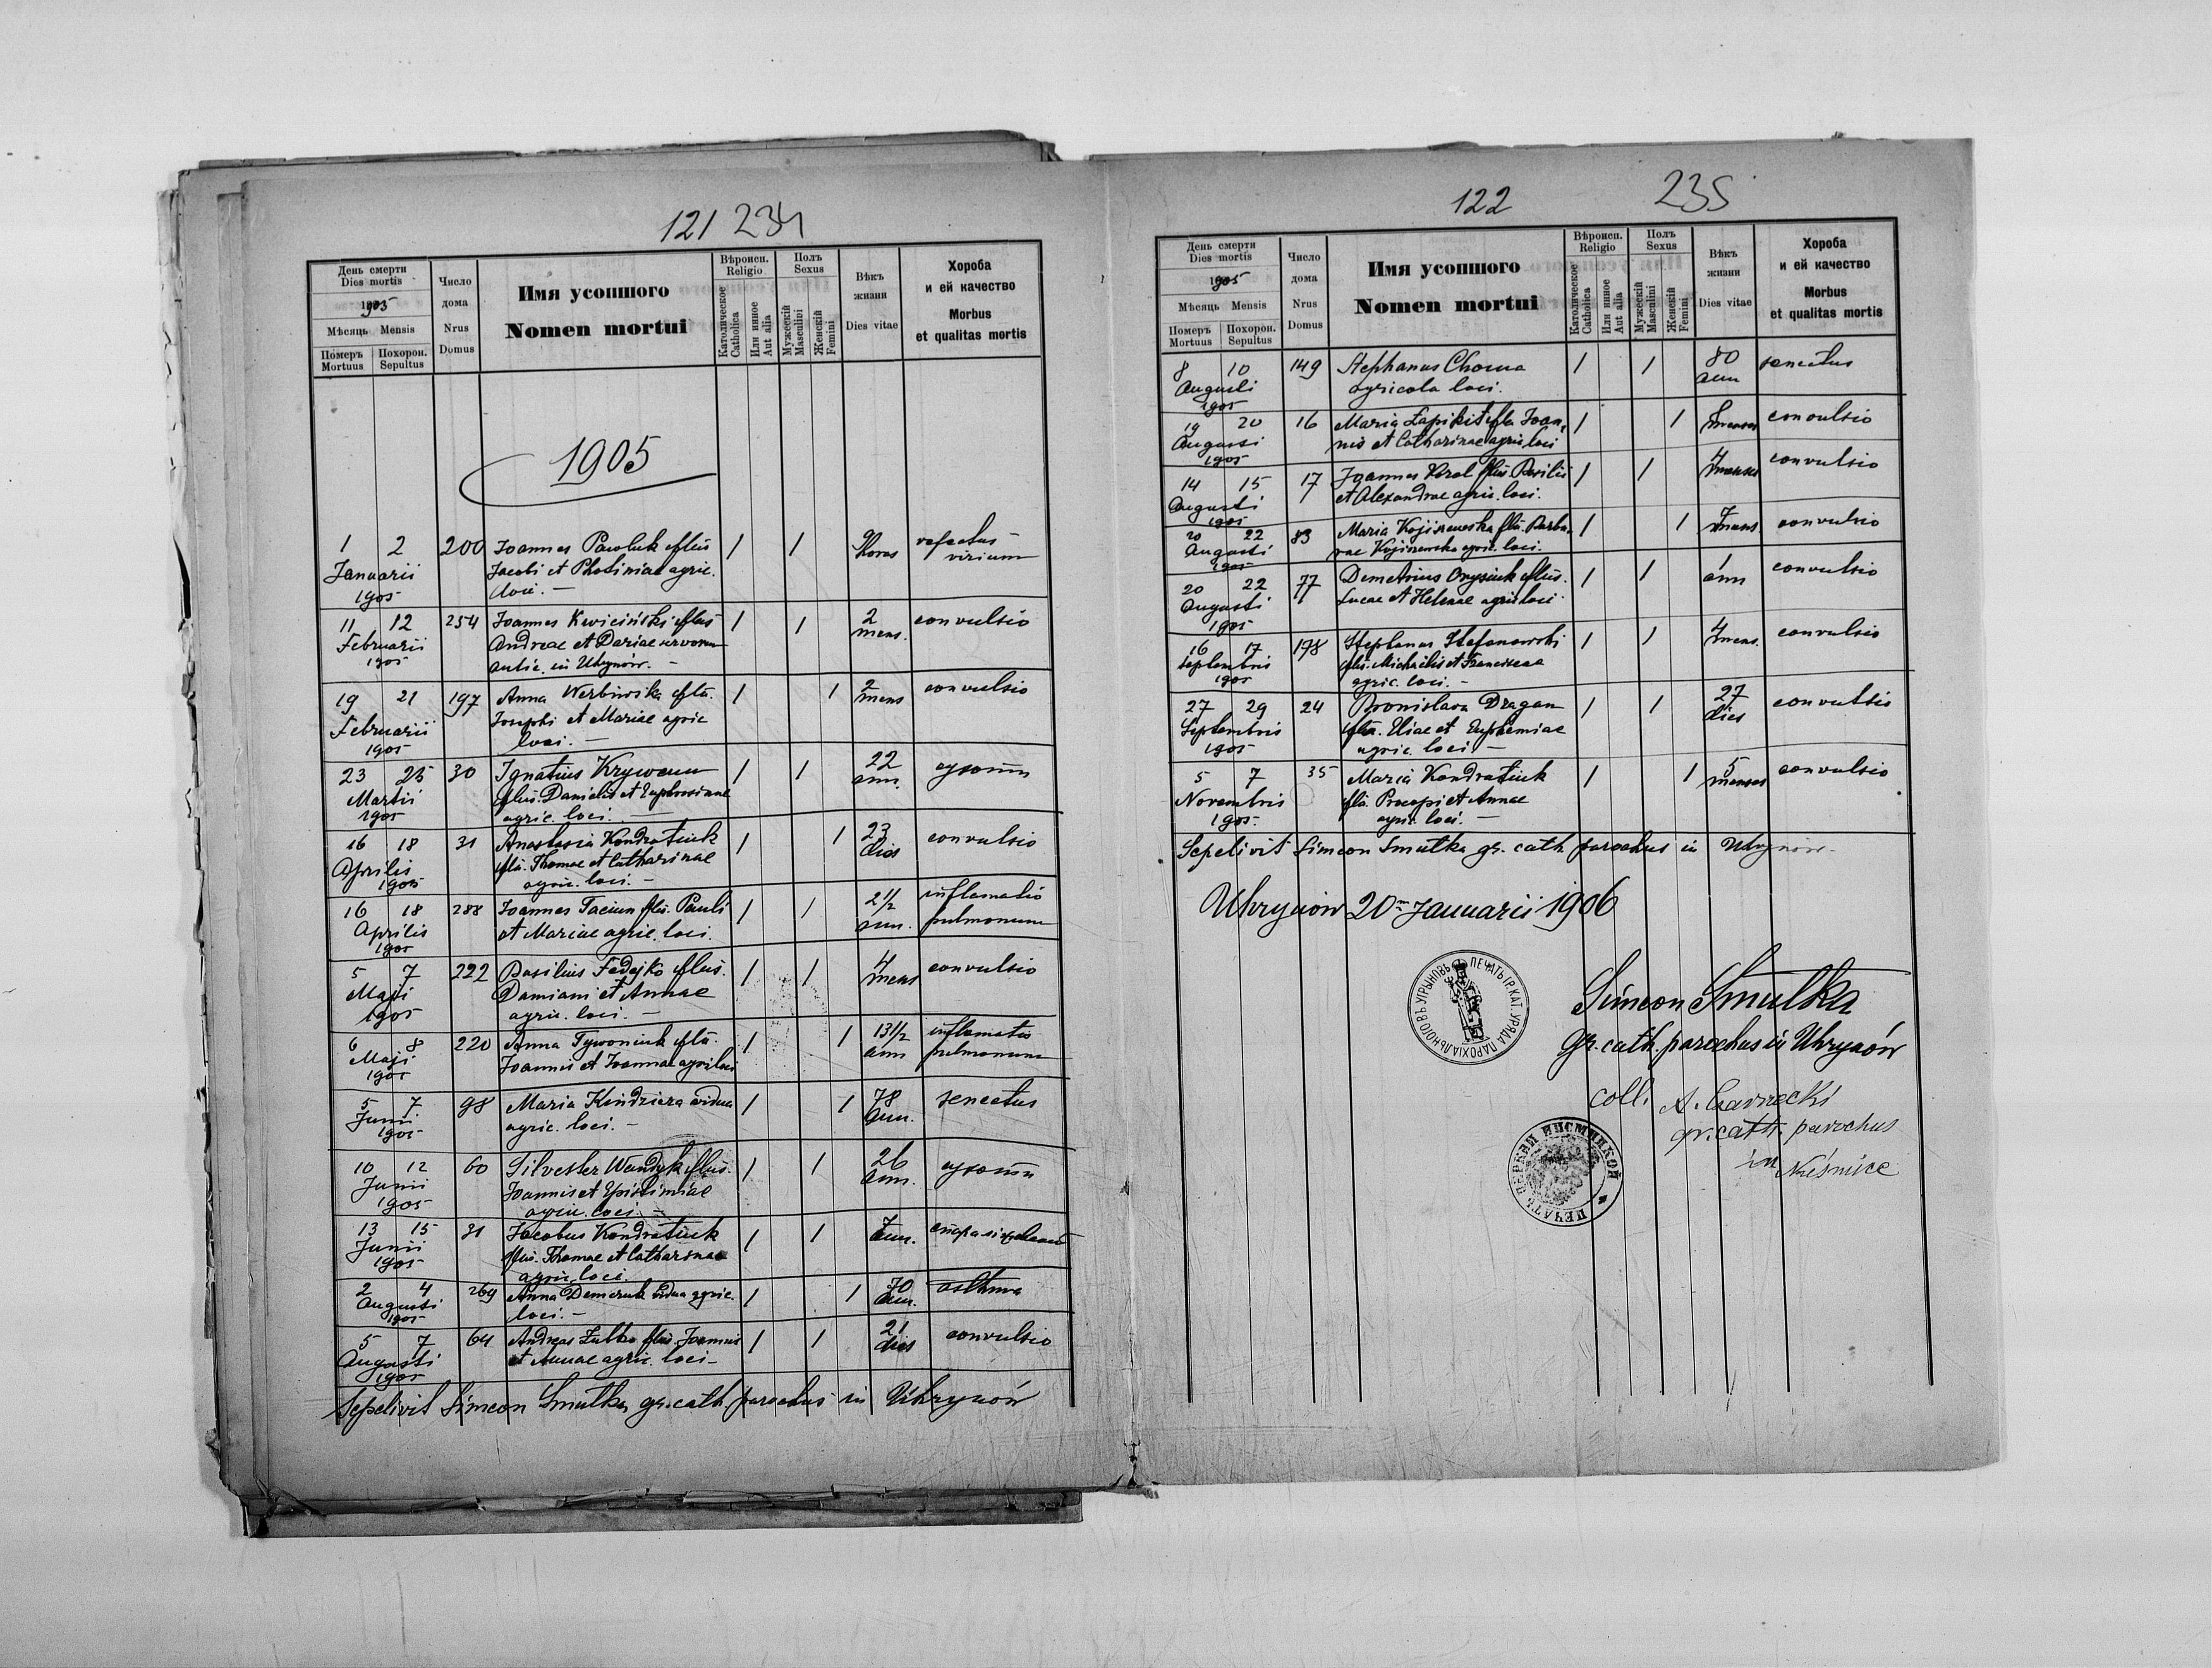 121 234
День смерти
Dies mortis
1905
Мѣсяць Mensis
Померъ Mortuus
Похорон. Sepultus
Число дома
Nrus Domus
Имя усопшого
Nomen mortui
Вѣроисп.
Religio
Католическое Catholica
Или инное Aut alia
Полъ
Sexus
Мужескій Masculini
Женскій Femini
Вѣкъ жизни
Dies vitae
Хороба
и ей качество
Morbus
et qualitas mortis
1905
1 2 200 Joannes Pawluk filius 1 1 9 defectus
Januarii Jacobi et Photiniae agric. horas virium
1905 loci. –
11 12 254 Joannes Kwiciński filius 1 1 2 convulsio
Februarii Andreae et Dariae mens.
1905 in Uhrynów. –
19 21 197 Anna Werbiwska filia. 1 1 2 convulsio
Februarii Josephi et Mariae agric mens
1905 loci. –
23 25 30 Ignatius Krywenn 1 1 22
Martii filius. Danielis et Euphrosinae ann.
1905 agric. loci. –
16 18 31 Anastasia Kondratiuk 1 1 23 convulsio
Aprilis filia. Thomae et Catharinae dies
1905 agric. loci. –
16 18 288 Joannes Taciun filius. Pauli 1 1 2 1/2 inflamatio
Aprilis et Mariae agric. loci. ann. pulmonum
1905
5 7 222 Basilius Fedejko filius. 1 1 4 convulsio
Maji Damiani et Annae mens
1905 agric. loci. –
6 8 220 Anna Tywoniuk filia. 1 1 13 1/2 inflamatio
Maji Joannis et Joannae agric loci ann pulmonum
1905
5 7 98 Maria Kindziera vidua 1 1 78 senectus
Junii agric. loci. – ann.
1905
10 12 60 Silvester Wandyk filius. 1 1 26
Junii Joannis et Epistimiae ann.
1905 agric. loci. –
13 15 31 Jacobus Kondratiuk 1 1 7
Junii filius. Thomae et Catharinae ann.
1905 agric. loci.
2 4 269 Anna Demczuk vidua agric. 1 1 70 asthma
Augusti loci. – ann.
1905
5 7 64 Andreas Zubko filius. Joannis 1 1 21 convulsio
Augusti et Annae agric. loci – dies
1905
Sepelivit Simeon Smulka gr. cath. parochus in Uhrynów
122 235
День смерти
Dies mortis
1905
Мѣсяць Mensis
Померъ Mortuus
Похорон. Sepultus
Число дома
Nrus Domus
Имя усопшого
Nomen mortui
Вѣроисп.
Religio
Католическое Catholica
Или инное Aut alia
Полъ
Sexus
Мужескій Masculini
Женскій Femini
Вѣкъ жизни
Dies vitae
Хороба
и ей качество
Morbus
et qualitas mortis
8 10 149 Stephanus Choma 1 1 80 senectus
Augusti agricola loci. ann
1905
19 20 16 Maria Łapikit filia Joan- 1 1 8 menses convulsio
Augusti nis et Catharinae agric loci
1905
14 15 17 Joannes Korol filius. Basilii 1 1 4 menses convulsio
Augusti et Alexandrae agric. loci.
1905
20 22 83 Maria Kojiszewska filia. Barba- 1 1 7 mens convulsio
Augusti rae Kojiszewska agric. loci.
1905
20 22 77 Demetrius Onysiuk filius. 1 1 1 ann convulsio
Augusti Lucae et Helenae agric loci
1905
16 17 178 Stephanus Stefanowski 1 1 4 mens. convulsio
Septembris filius. Michaelis et Franciscae
1905 agric. loci. –
27 29 24 Bronislava Dragan 1 1 27 convulsio
Septembris filia. Eliae et Euphemiae dies
1905 agric. loci. –
5 7 35 Maria Kondratiuk 1 1 5 convulsio
Novembris filia. Procopi et Annae menses
1905. agric. loci. –
Sepelivit Simeon Smulka gr. cath parochus in Uhrynów –
Uhrynów 20m Januarii 1906
ПЕЧАТЬ ГР. КАТ. УРЯДА ПАРОХІАЛЬНОГО ВЪ УГРЫНОВѢ
Simeon Smulka
gr. cath. parochus in Uhrynów
coll. A. Czarnecki
gr. cath. parochus
in Niśmice
ПЕЧАТЬ ЦЕРКВИ НИСМИЦКОЙ